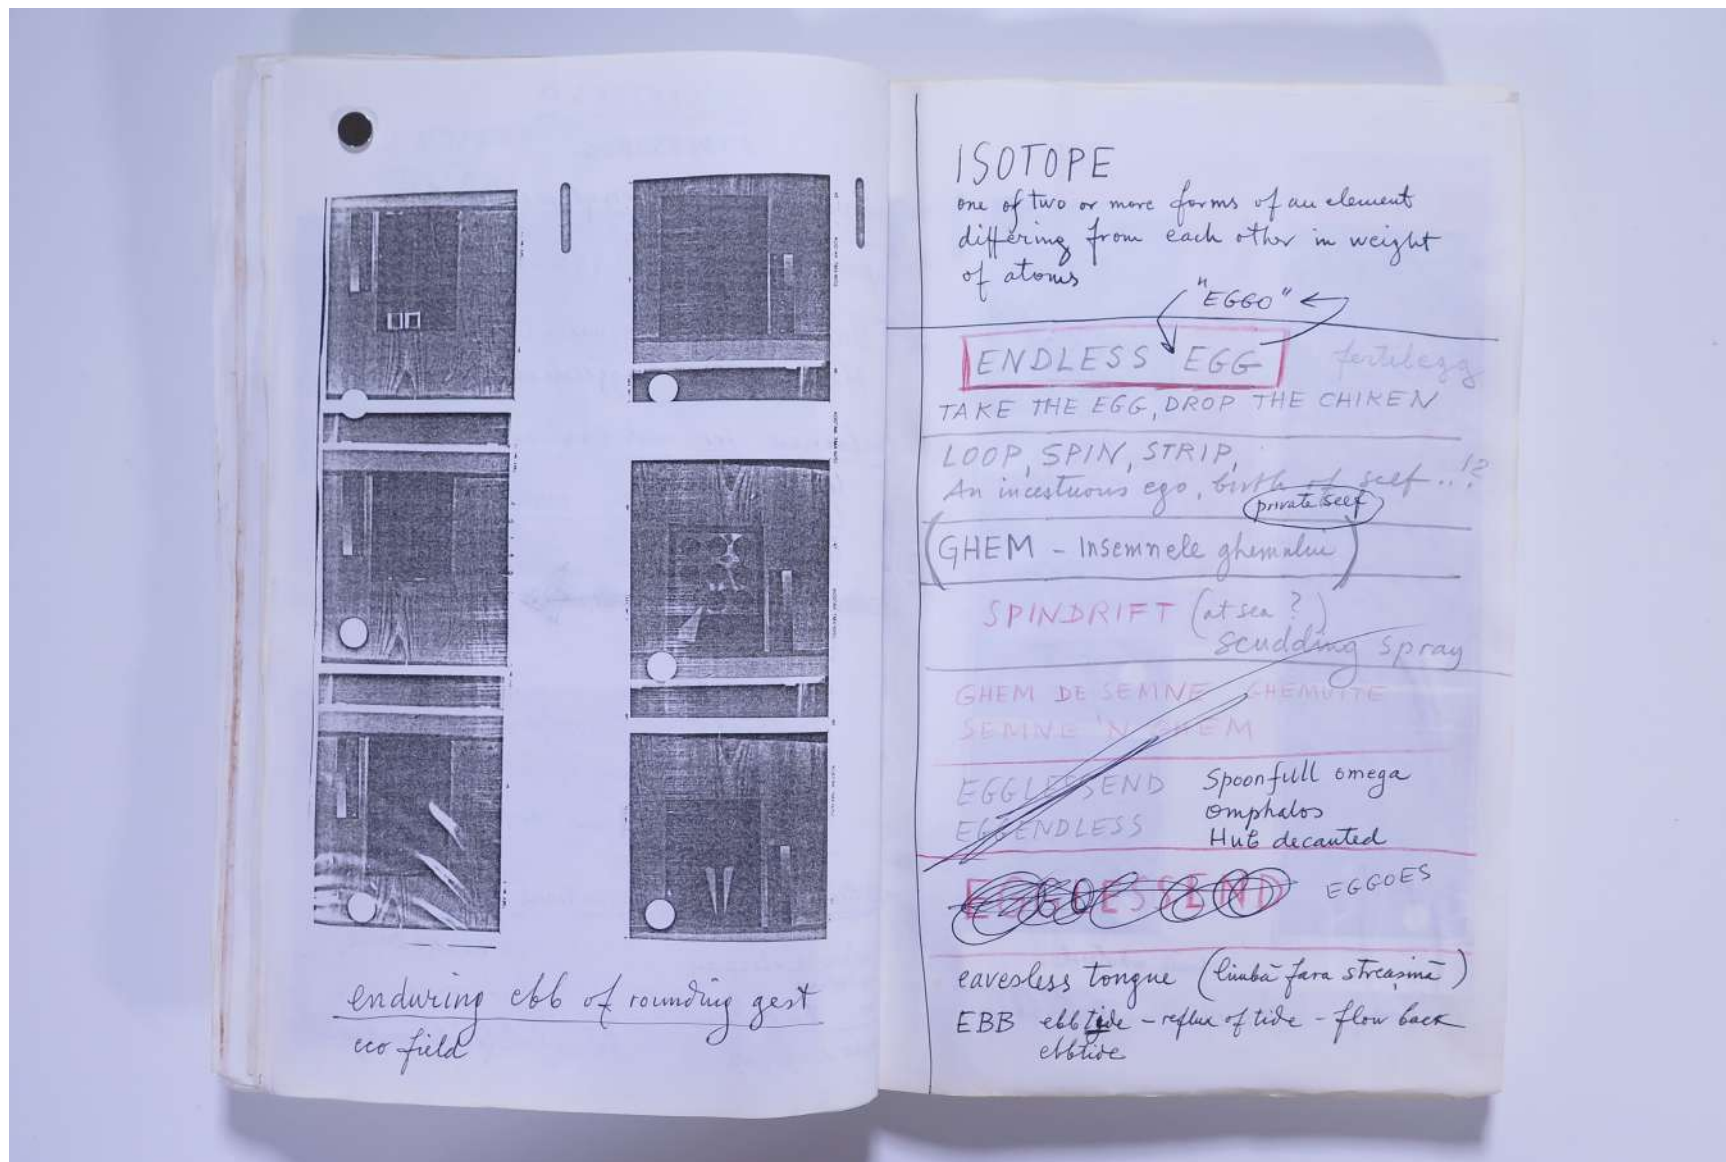 enduring ebb of rounding gest
eco field
ISOTOPE
one of two or more forms of an element
differing from each other in weight
of atoms
"EGGO"
ENDLESS EGG
fertilegg
TAKE THE EGG, DROP THE CHIKEN
LOOP, SPIN, STRIP,
An incestuous ego, birth of self ..!?
private self
(GHEM - Insemnele ghemului)
SPINDRIFT (at sea?)
scudding spray
GHEM DE SEMNE GHEMUITE
SEMNE 'N GHEM
EGGLESSEND
EGGENDLESS
Spoonfull omega
omphalos
Hub decanted
EGGLESSEND
EGGOES
eavesless tongue (limbă fara streașină)
EBB ebbtide - reflux of tide - flow back
ebbtide